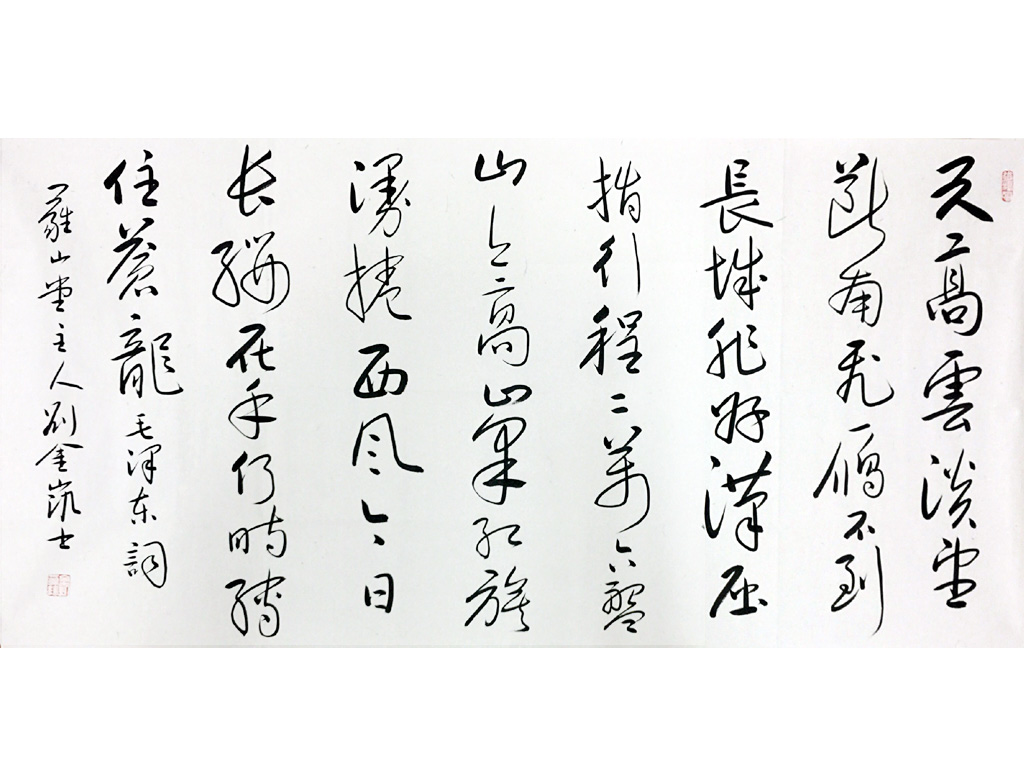 天高雲淡望
斷南飛雁不到
長城非好漢屈
指行程二萬六盤
山上高峯紅旗
漫捲西风今日
长纓在手何時縛
住蒼龍 毛泽东詞
山堂主人刘金凱书